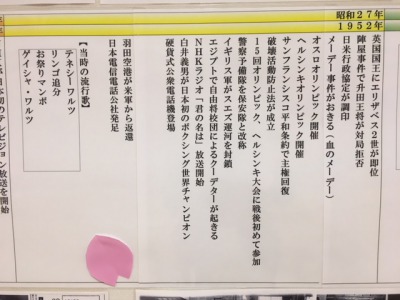 昭和27年
1952年
英国国王にエリザベス2世が即位
陣屋事件で升田王将が対局拒否
日米行政協定が調印
メーデー事件がおきる(血のメーデー)
オスロオリンピック 開催
ヘルシンキオリンピック 開催
サンフランシスコ平和条約で主権回復
破壊活動防止法が成立
15回オリンピック、ヘルシンキ大会に戦後初めて参加
警察予備隊を保安隊と改称
イギリス軍がスエズ運河を封鎖
エジプトで自由将校団によるクーデターが起きる
NHKラジオ「君の名は」放送開始
白井義男が日本初のボクシング世界チャンピオン
硬貨式公衆電話機登場
羽田空港が米軍から返還
日本電信電話公社発足
【当時の流行歌】
テネシーワルツ
リンゴ追分
お祭りマンボ
ゲイシャ・ワルツ